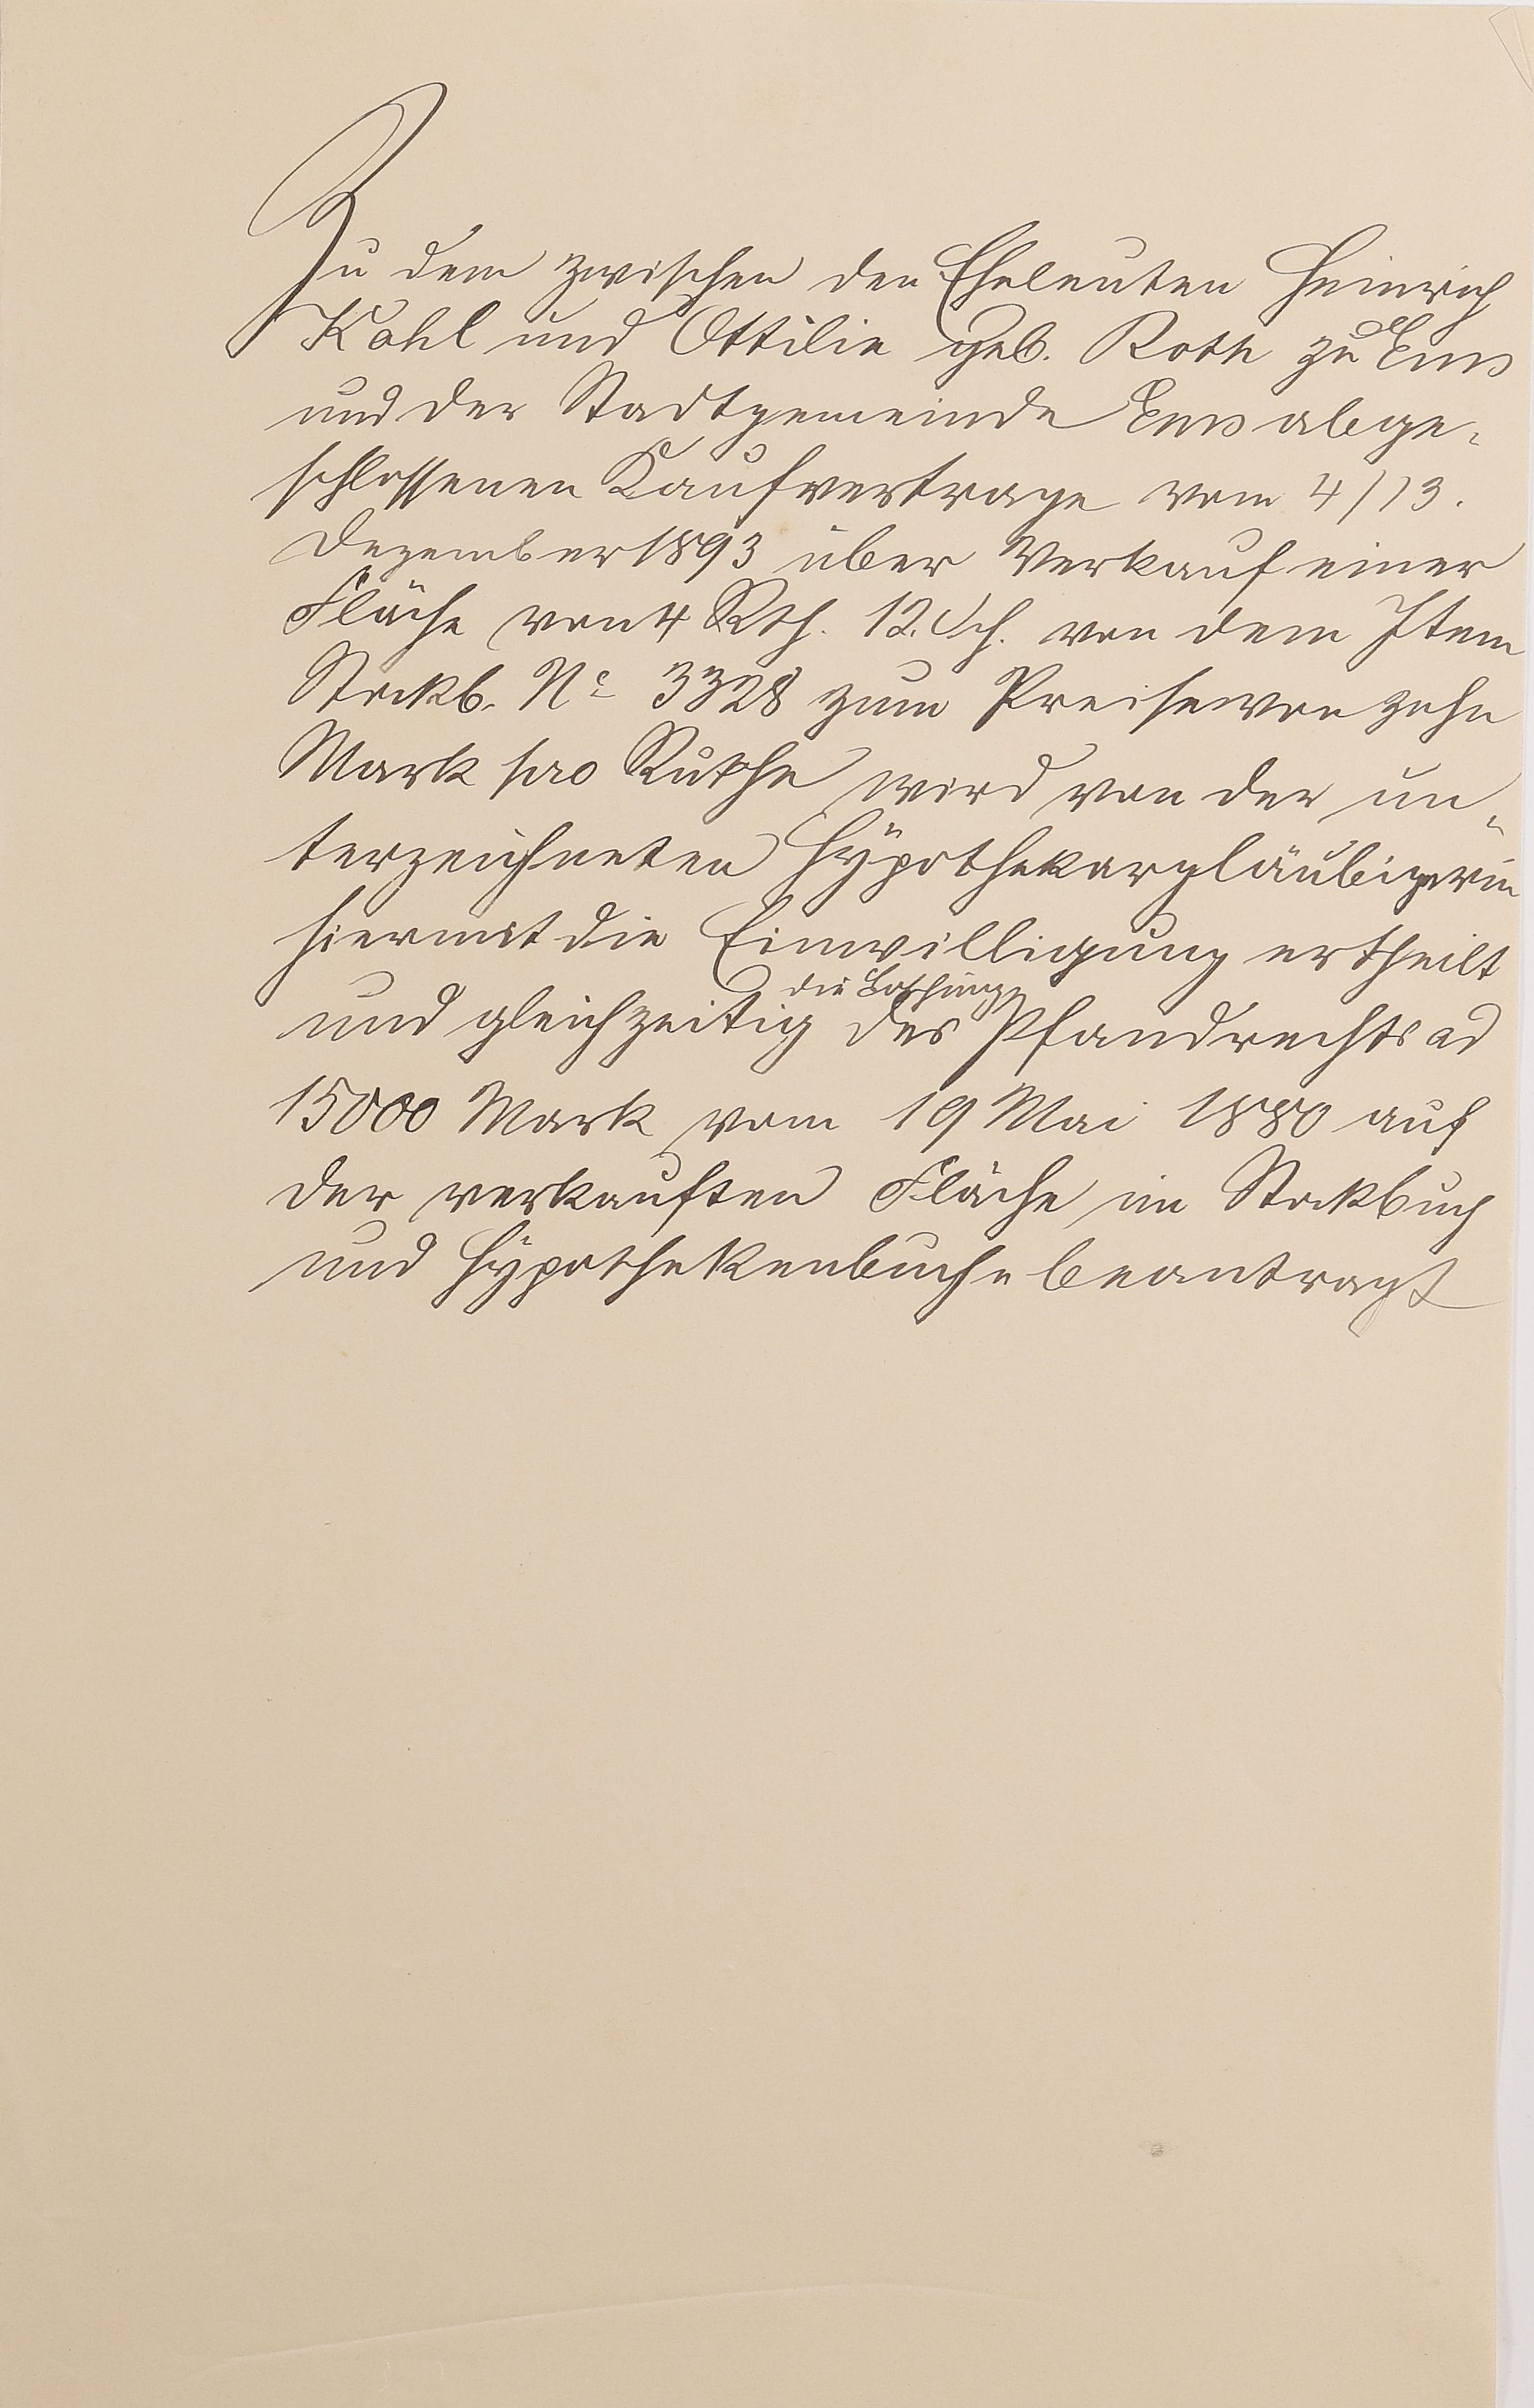 Zu dem zwischen den Eheleuten Heinrich
Kahl und Ottilie geb. Roth zu Ems
und der Stadtgemeinde Ems abge-
schlossenen Kaufvertrage vom 4/13.
Dezember 1893 über Verkauf einer
Fläche von 4 Rth. 12. Sch. von dem Item
Stockb. No 3328 zum Preise von zehn
Mark pro Ruthe wird von der un-
terzeichneten Hypothekargläubigerin
hiermit die Einwilligung ertheilt
die Löschung
und gleichzeitig des Pfandrechts ad
15000 Mark vom 19 Mai 1880 auf
der verkauften Fläche im Stockbuch
und Hypothekenbuche beantragt